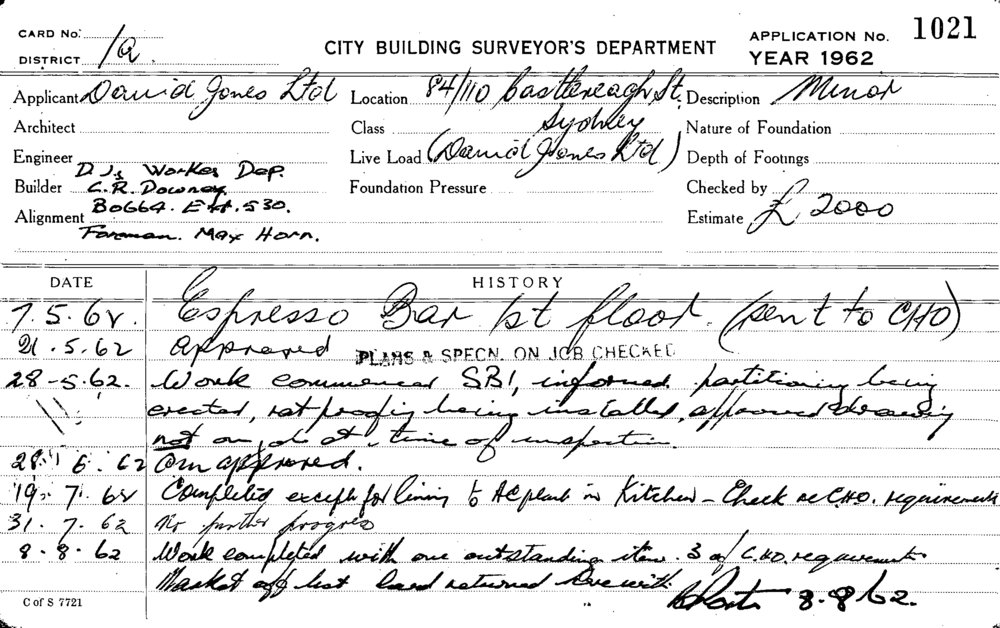 CARD No.
DISTRICT 1a.
CITY BUILDING SURVEYOR'S DEPARTMENT
APPLICATION No. 1021
YEAR 1962
Applicant David Jones Ltd
Location 84/110 Castlereagh St. Sydney
Description Minor
Architect
Class
Nature of Foundation
Engineer
Live Load (David Jones Ltd)
Depth of Footings
Builder D.Js Works Dep.
C.R. Downey
Foundation Pressure
Checked by
Alignment B0664. Ext. 530.
Foreman. Max Horn.
Estimate £ 2000
DATE HISTORY
7.5.62. Espresso Bar 1st floor. (sent to CHO)
21.5.62 approved PLANS & SPECN. ON JOB CHECKED
28-5.62. Work commenced SBI, informed. partitioning being
erected, rat proofing being installed, approved drawing
not on job at time of inspection.
28. 6. 62 approved.
19. 7. 62 Completed except for lining to AC plant in Kitchen - Check re C.H.O. requirements
31. 7. 62 No further progress
8. 8. 62 Work completed with one outstanding item. 3 of C.H.O. requirements
Marked off list card returned herewith.
8.8.62.
C of S 7721